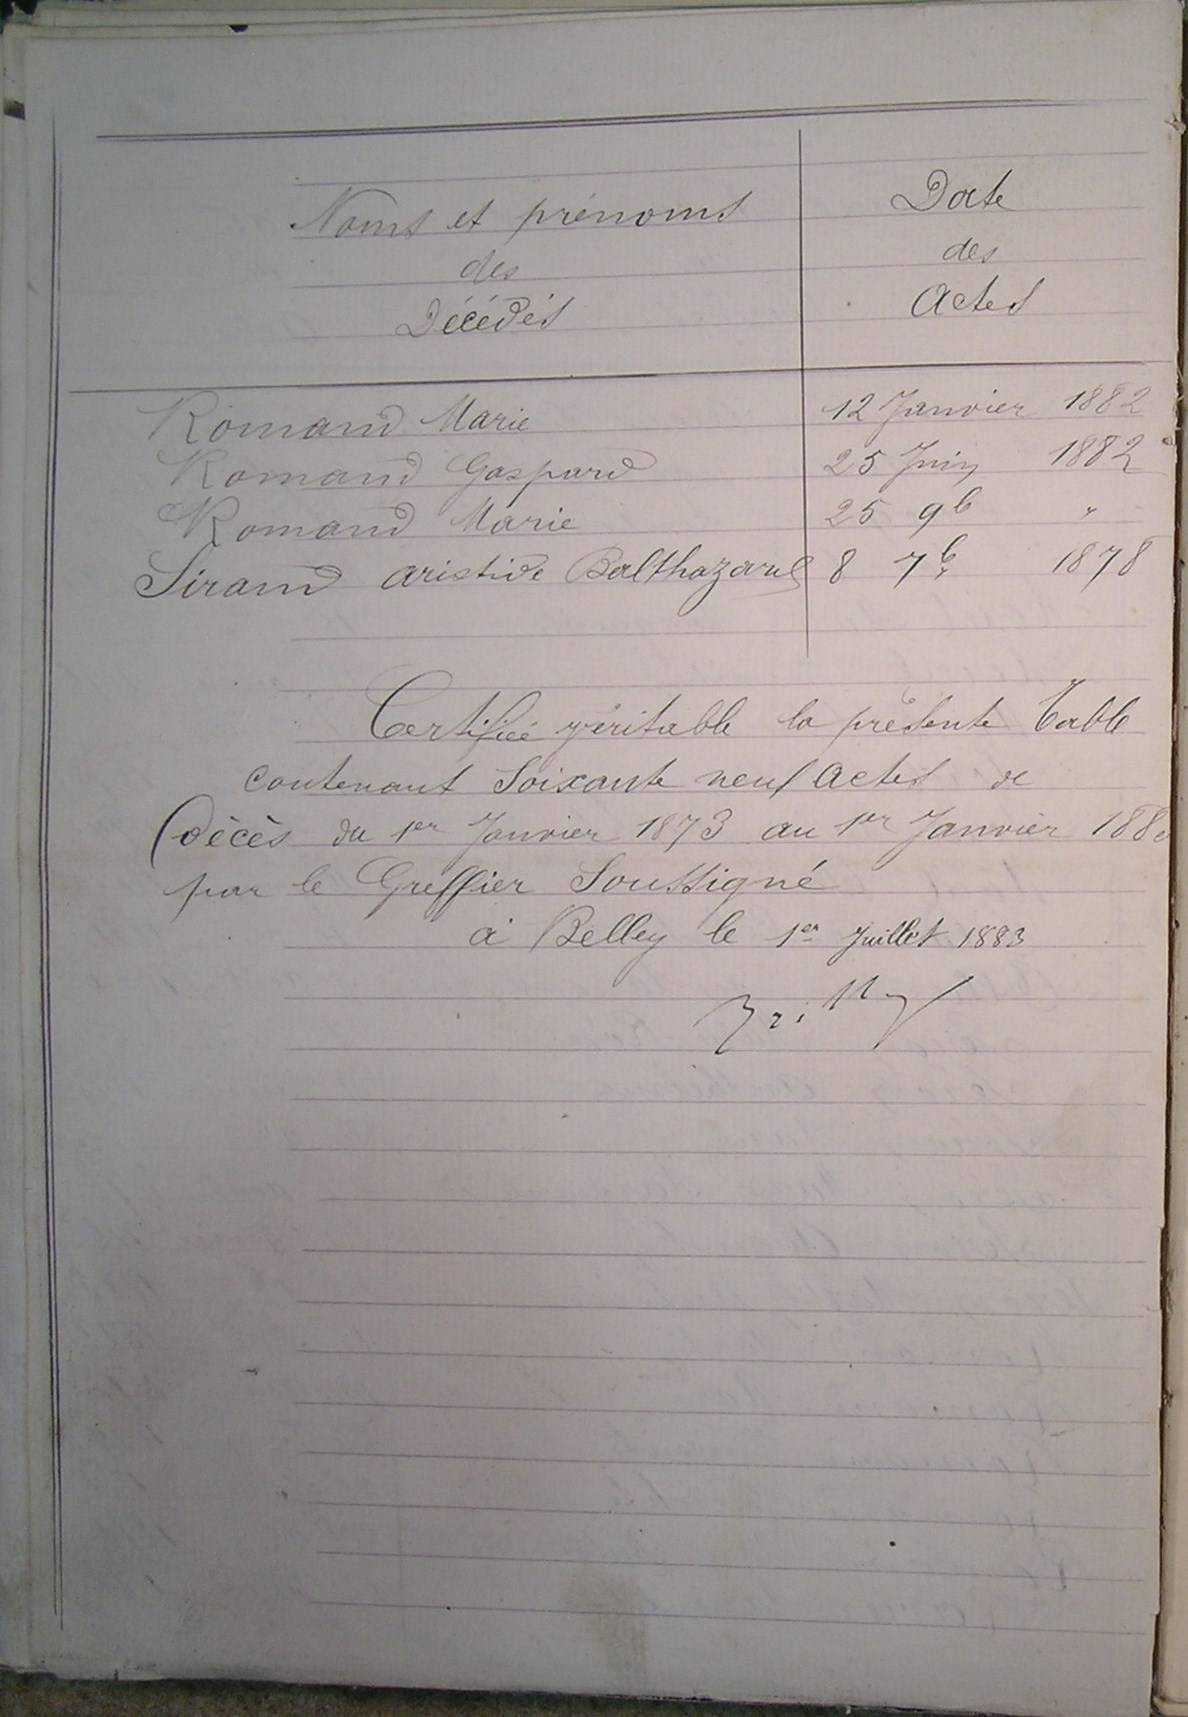 Noms et prénoms
des
Décédés
Date
des
Actes
Romand Marie 12 Janvier 1882
Romand Gaspard 25 Juin 1882
Romand Marie 25 9b "
Sirand Aristide Balthazard 8 7b 1878
Certifié véritable la présente Table
contenant Soixante neuf Actes de
Décès du 1er Janvier 1873 au 1er Janvier
par le Greffier Soussigné
à Belley le 1er Juillet 1883